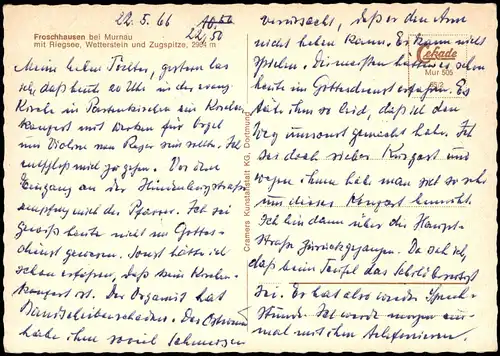 22.5.66
22,50
Froschhausen bei Murnau
mit Riegsee, Wetterstein und Zugspitze, 2964 m
Meine lieben Töchter, gestern las
ich, daß heute 20 Uhr in der evang.
Kirche in Partenkirchen ein Kirchen-
konzert mit Werken für Orgel
und Violine von Reger sein sollte. Ich
entschloß mich zu gehen. Vor dem
Eingang an der Hindenburgstraße
empfing mich der Pfarrer. Ich sei
gewiß heute nicht im Gottes-
dienst gewesen. Sonst hätte ich
schon erfahren, daß kein Kirchen-
konzert ist. Der Organist hat
Bandscheibenschaden. Das
habe ihm soviel Schmerzen
Cramers Kunstanstalt KG, Dortmund
verursacht, daß er den Arm
nicht heben kann. Er kann nicht
spielen. Die meisten hätten es schon
heute im Gottesdienst erfahren. Es
täte ihm so leid, daß ich den
Weg umsonst gemacht habe. Ich
sei doch sicher Kurgast und
wegen ihnen habe man sich so sehr
um dieses Konzert bemüht.
Ich bin dann über die Haupt-
straße zurückgegangen. Da sah ich,
daß beim Teufel das Schild
sei. Er hat also wieder Sprech-
stunde. Ich werde morgen ein-
mal mit ihm telefonieren.
Cekade
Mur 505